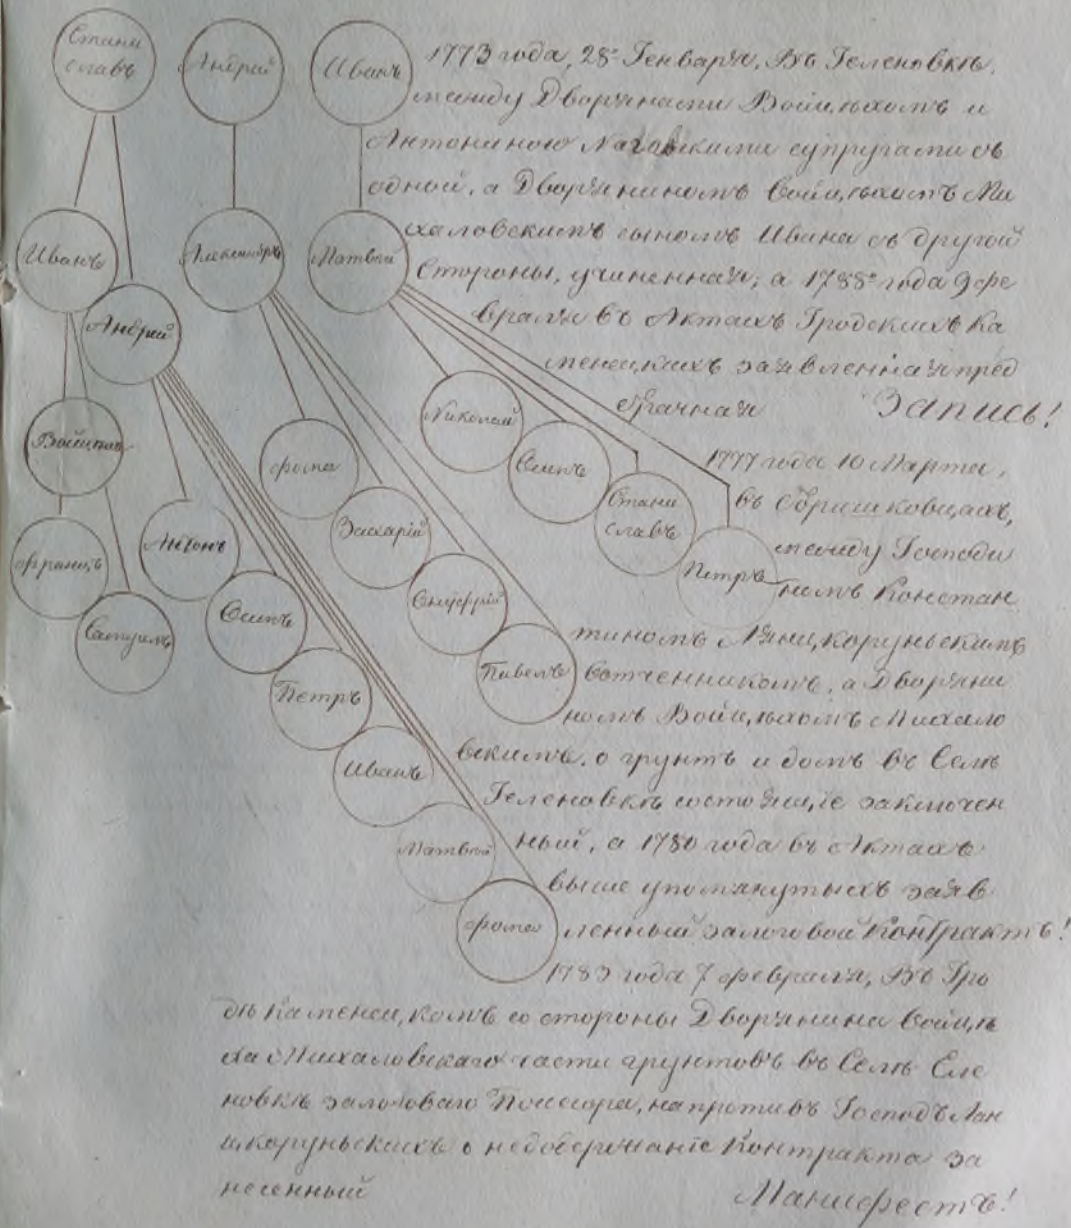 Стани
славъ
Андрей
Иванъ
Иванъ
Андрей
Александръ
Матвей
Войцехъ
Францъ
Самуилъ
Антонъ
Осипъ
Петръ
Иванъ
Матвей
Фома
Фома
Захарій
Онуфрій
Павелъ
Николай
Осипъ
Стани
славъ
Петръ
1773 года, 28го Генваря, Въ Геленовкѣ,
между Дворянами Войцѣхомъ и
Антониною супругами съ
одной, а Дворяниномъ Войцѣхомъ Ми
халовскимъ сыномъ Ивана съ другой
стороны, учиненная; а 1788го года 9 фе
враля въ Актахъ Гродскихъ Ка
менецкихъ заявленная пред
брачная Запись!
1777 года 10 Марта,
въ
между Господи
номъ Констан
тиномъ Лянцкоруньскимъ
вотченникомъ, а Дворяни
номъ Войцѣхомъ Михало
вскимъ, о грунтъ и домъ въ Селѣ
Геленовкѣ состоящіе заключен
ный, а 1780 года въ Актахъ
выше упомянутыхъ заяв
ленный залоговой Контрактъ!
1783 года 7 февраля, Въ Гро
дѣ Каменецкомъ со стороны Дворянина Войцѣ
ха Михаловскаго части грунтовъ въ Селѣ Еле
новкѣ залоговаго Поссесора, напротивъ Господъ Лан
цкоруньскихъ о недодержаніе Контракта за
несенный Манифестъ!